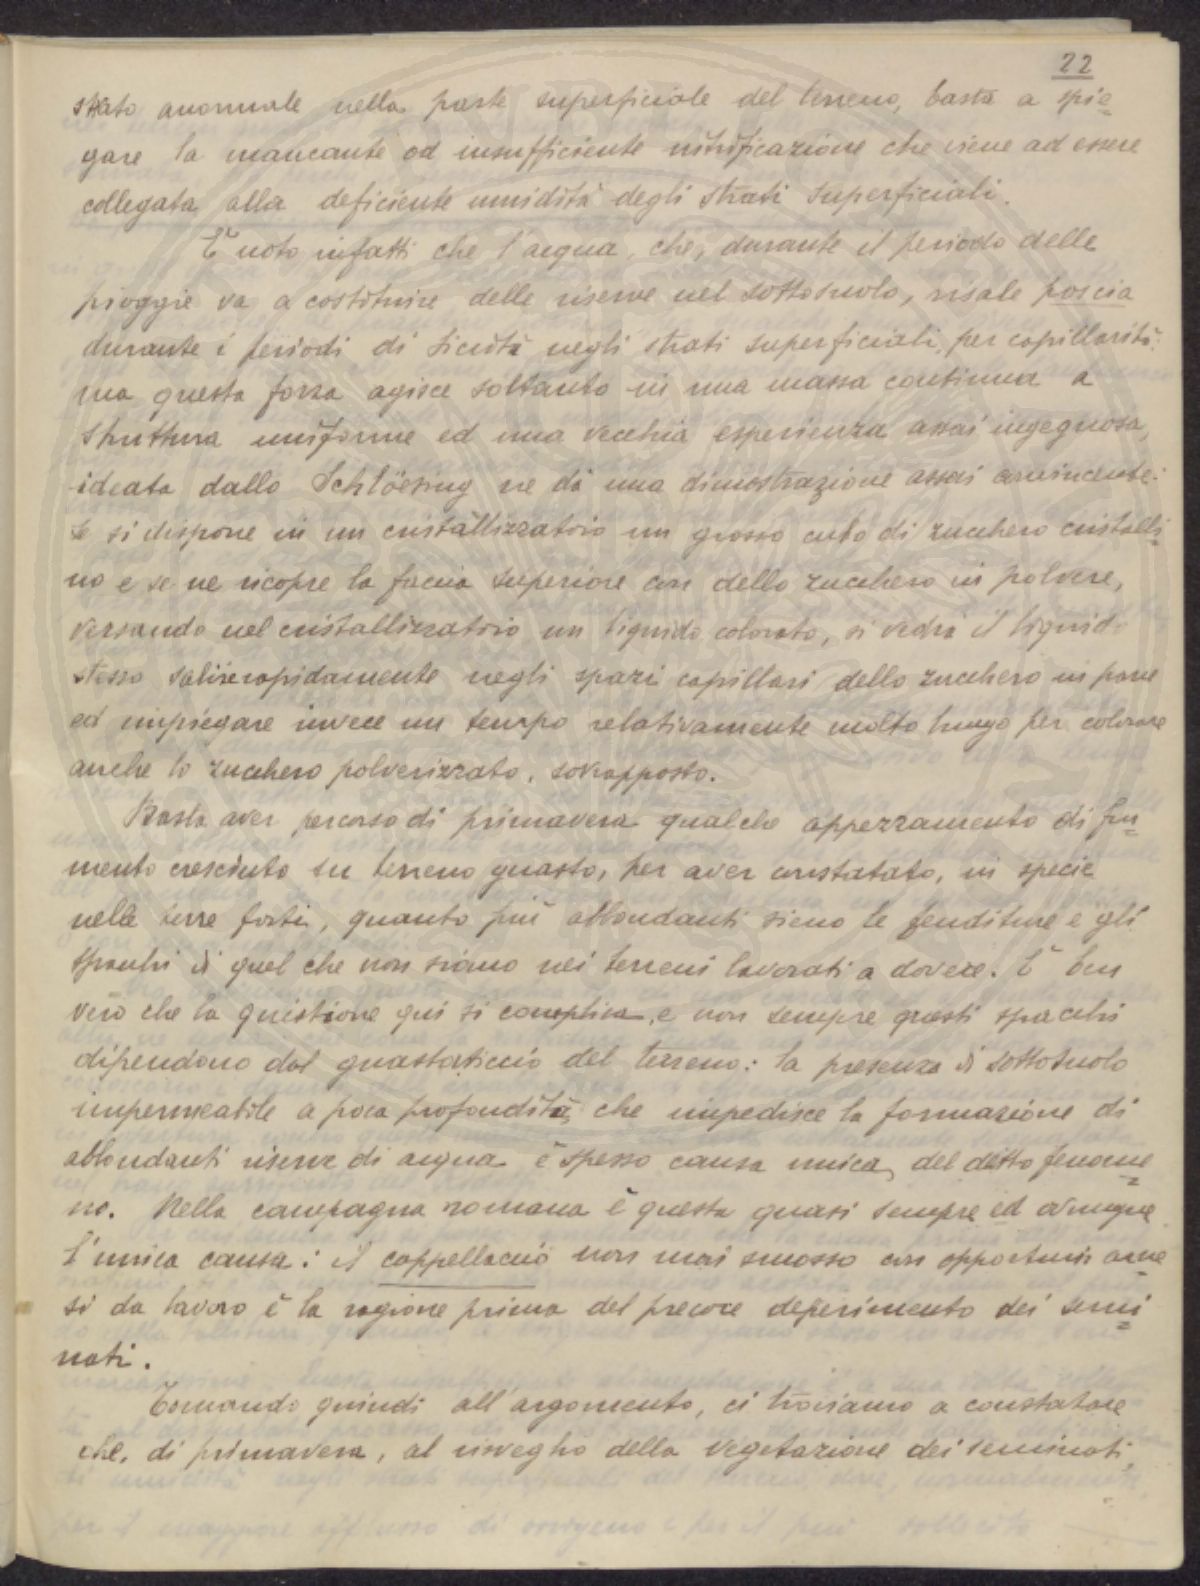 22
stato anormale nella parte superficiale del terreno, basta a spie=
gare la mancante od insufficiente nitrificazione che viene ad essere
collegata alla deficiente umidità degli strati superficiali.
È noto infatti che l'acqua, che, durante il periodo delle
pioggie va a costituire delle riserve nel sottosuolo, risale poscia
durante i periodi di siccità negli strati superficiali, per capillarità:
ma questa forza agisce soltanto in una massa continua a
struttura uniforme ed una vecchia esperienza assai ingegnosa,
ideata dallo Schlöesing ne dà una dimostrazione assai convincente:
se si dispone in un cristallizzatorio un grosso cubo di zucchero cristalli=
no e se ne ricopre la faccia superiore con dello zucchero in polvere,
versando nel cristallizzatorio un liquido colorato, si vedrà il liquido
stesso salire rapidamente negli spazi capillari dello zucchero in pane
ed impiegare invece un tempo relativamente molto lungo per colorare
anche lo zucchero polverizzato, sovrapposto.
Basta aver percorso di primavera qualche appezzamento di fru=
mento cresciuto su terreno guasto, per aver constatato, in specie
nelle terre forti, quanto più abbondanti sieno le fenditure e gli
spacchi di quel che non siano nei terreni lavorati a dovere. È ben
vero che la quistione qui si complica, e non sempre questi spacchi
dipendono dal guastaticcio del terreno: la presenza di sottosuolo
impermeabile a poca profondità, che impedisce la formazione di
abbondanti riserve di acqua è spesso causa unica, del detto fenome=
no. Nella campagna romana è questa quasi sempre ed ovunque
l'unica causa: il cappellaccio non mai smosso con opportuni arne=
si da lavoro è la ragione prima del precoce deperimento dei semi=
nati.
Tornando quindi all'argomento, ci troviamo a constatare
che, di primavera, al risveglio della vegetazione dei seminati,